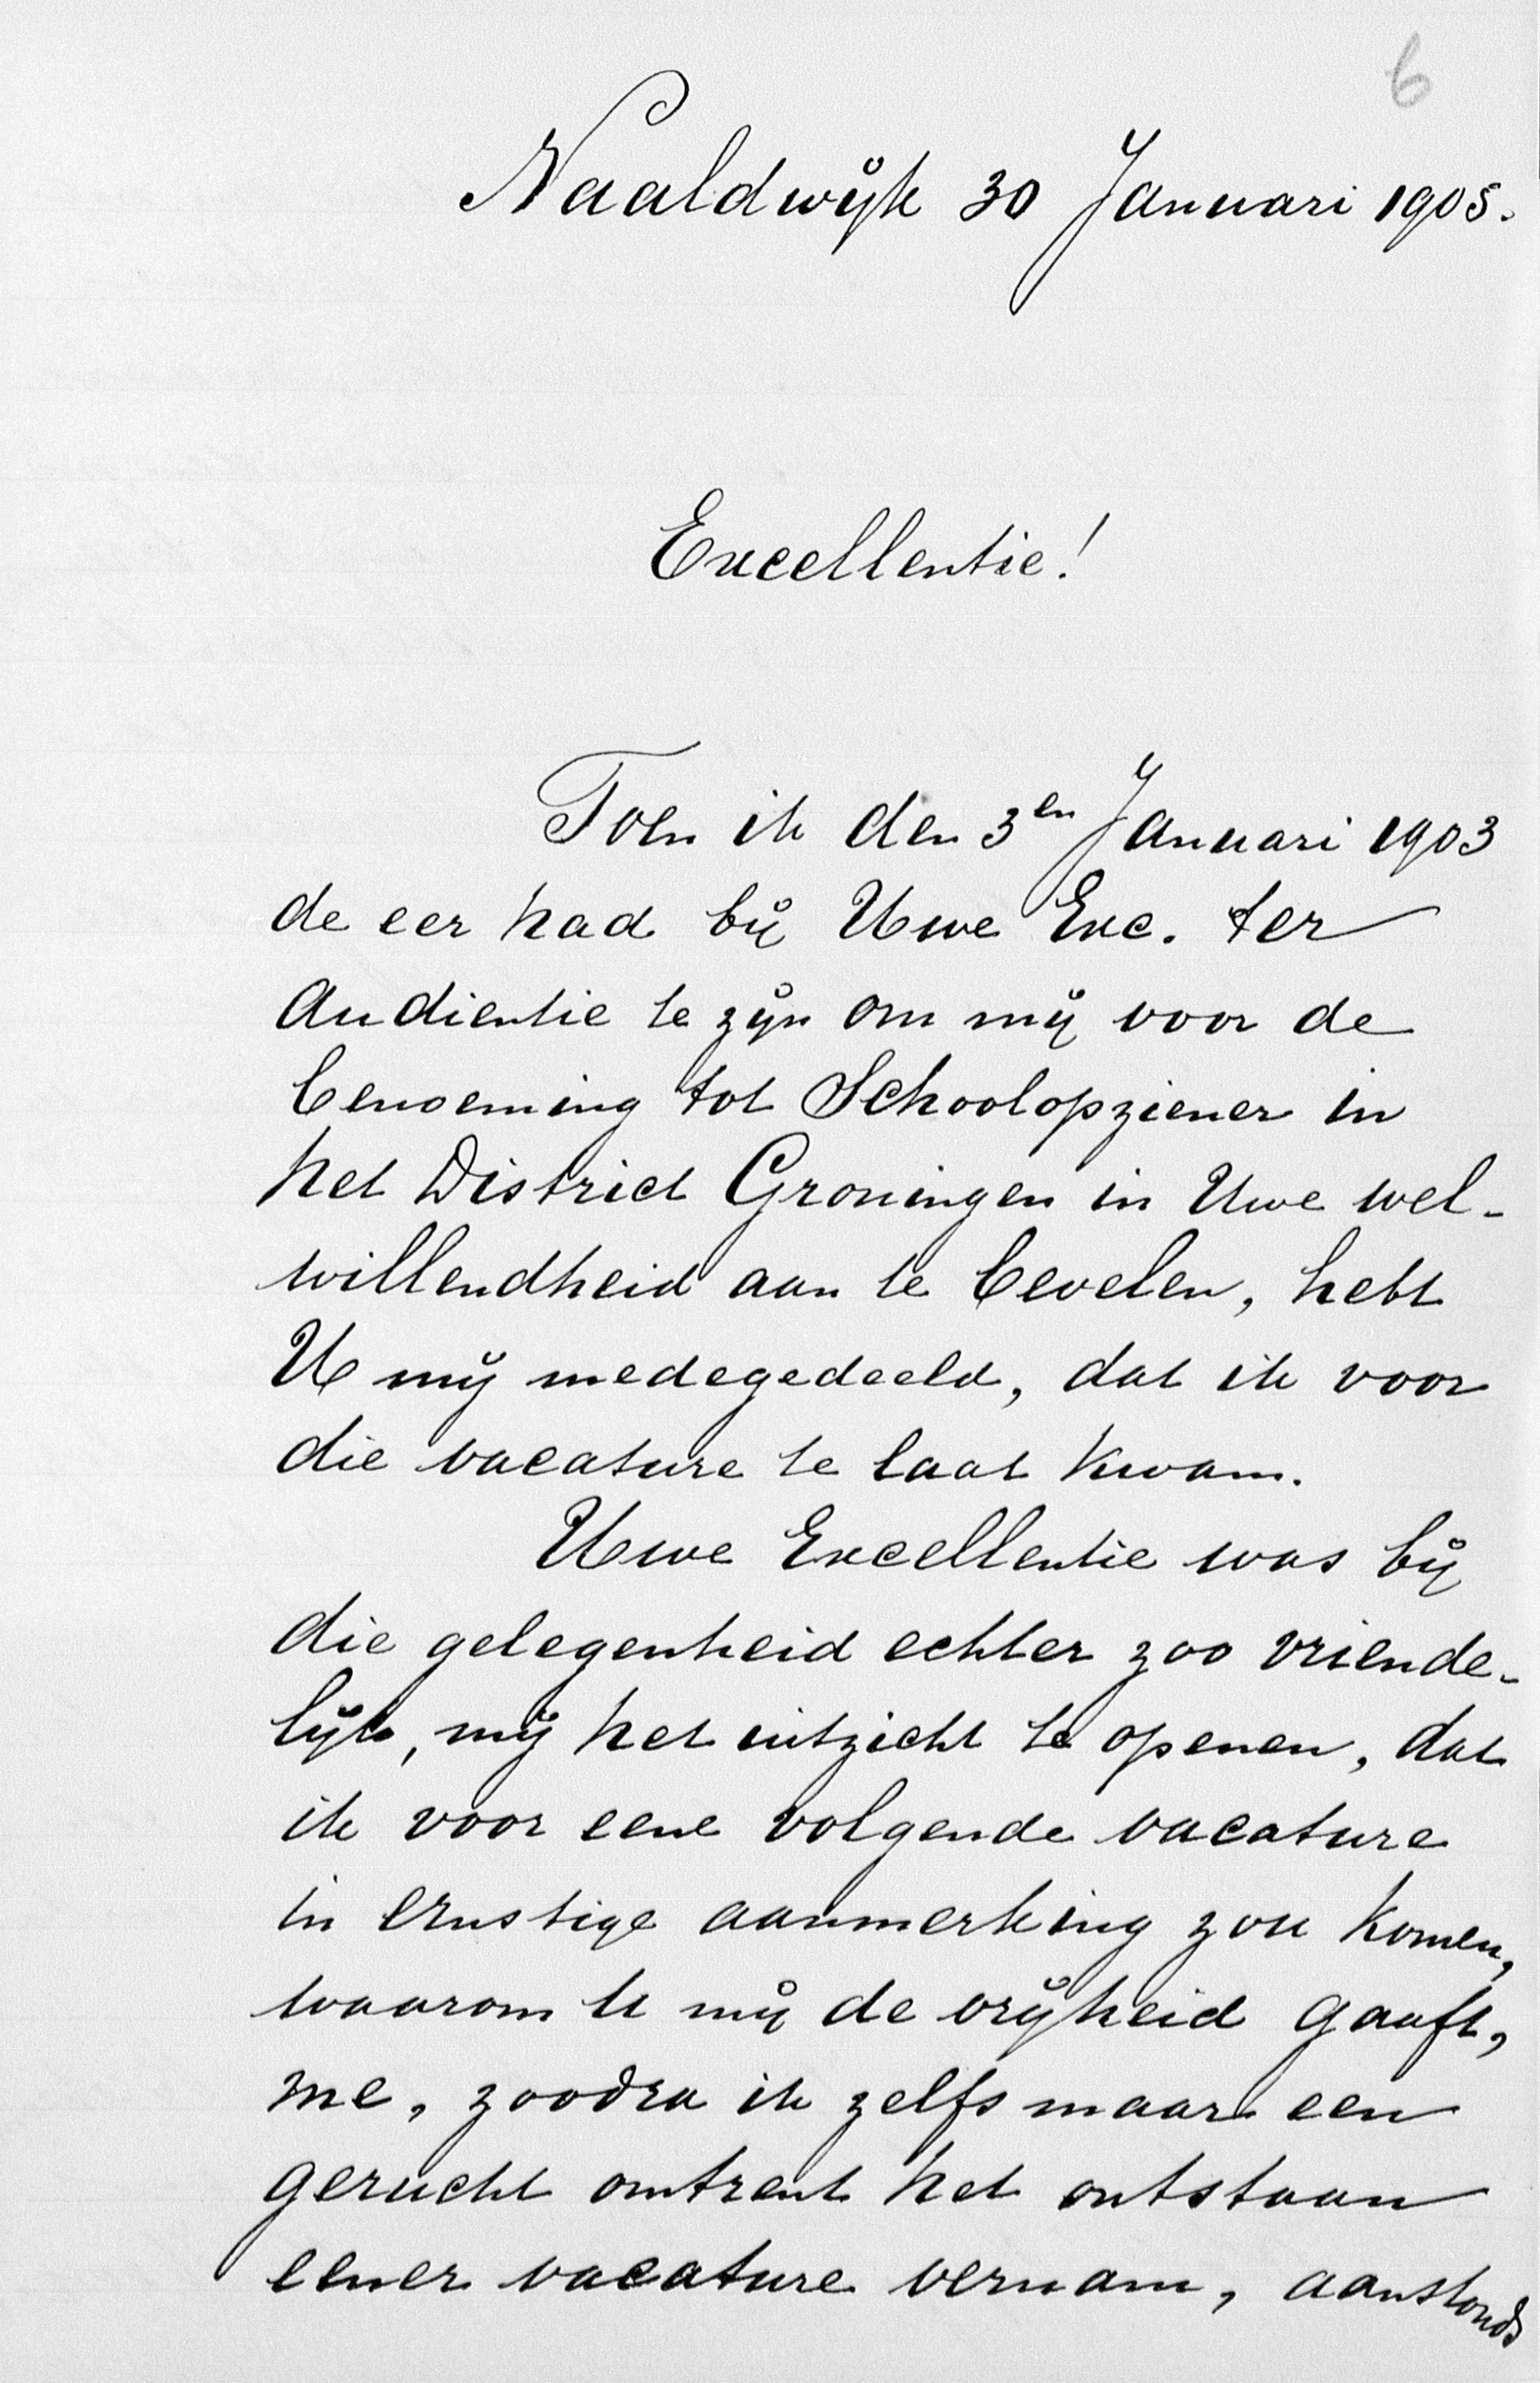 6
Naaldwijk 30 Januari 1905.
Excellentie!
Toen ik den 3en Januari 1903
de eer had bij Uwe Exc. ter
Audientie te zijn om mij voor de
benoeming tot Schoolopziener in
het District Groningen in Uwe wel-
willendheid aan te bevelen, hebt
U mij medegedeeld, dat ik voor
die vacature te laat kwam.
Uwe Excellentie was bij
die gelegenheid echter zoo vriende-
lijk, mij het uitzicht te openen, dat
ik voor eene volgende vacature
in ernstige aanmerking zou komen,
waarom U mij de vrijheid gaaft,
me, zoodra ik zelfs maar een
gerucht omtrent het ontstaan
eener vacature vernam, aanstonds